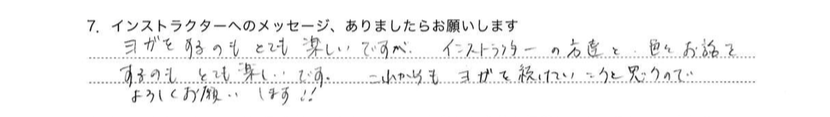 7. インストラクターへのメッセージ、ありましたらお願いします
ヨガをするのもとても楽しいですが、インストラクターの方達と色々お話を
するのもとても楽しいです。これからもヨガを続けていこうと思うので
よろしくお願いします!!